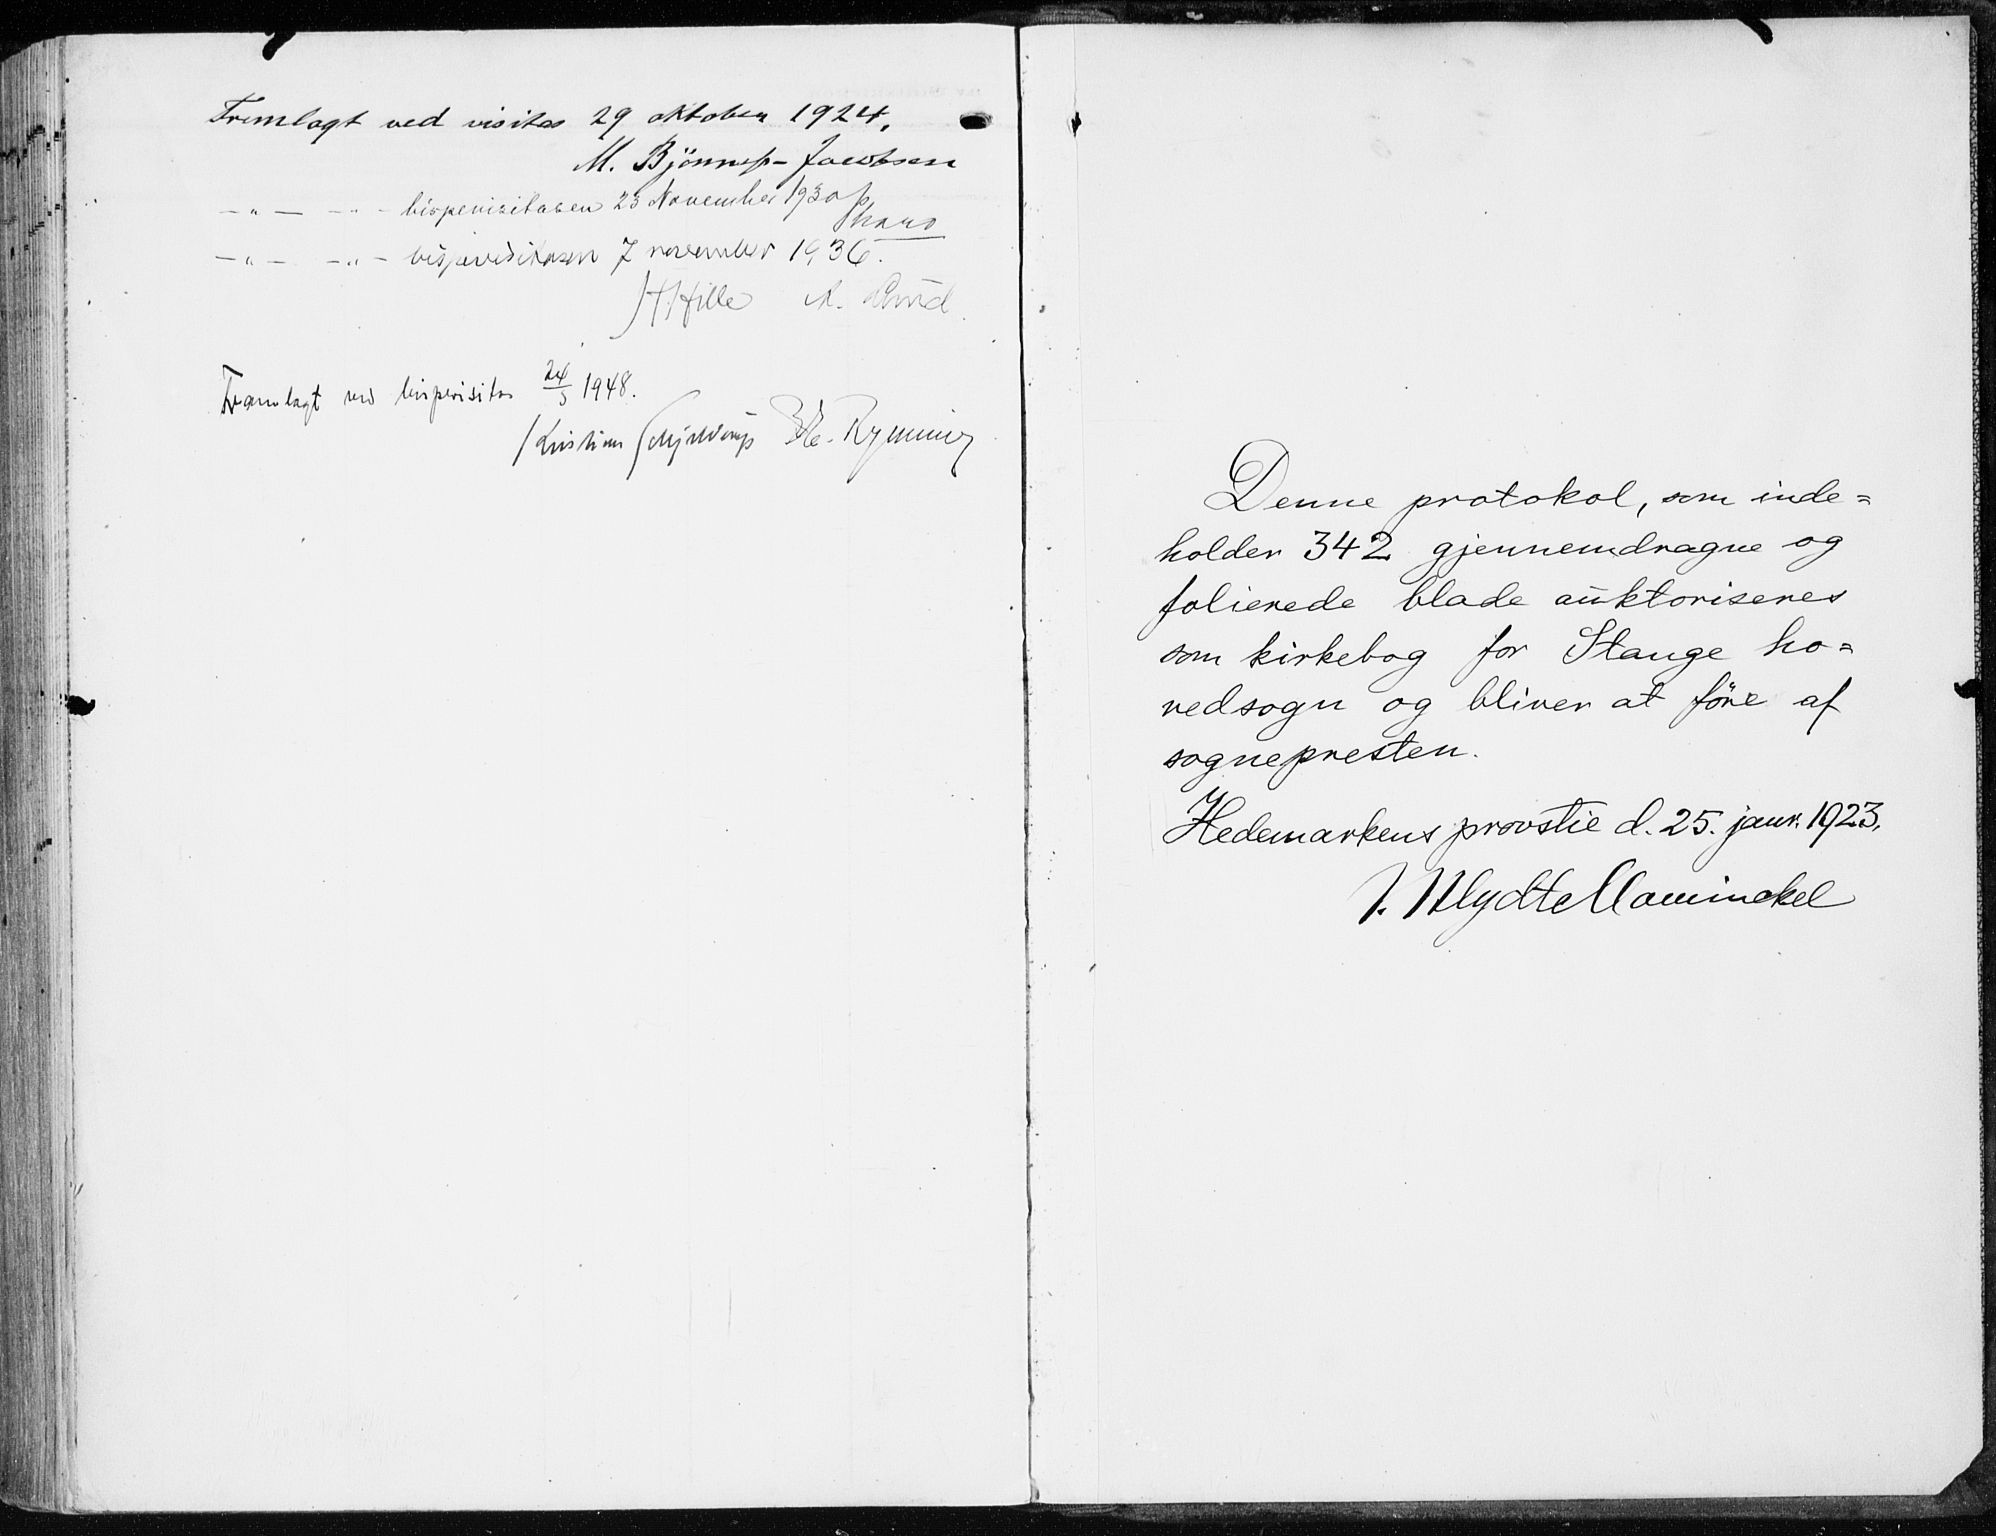 Fremlagt ved visitas 29 oktober 1924.
M. Bjönness-Jacobsen
— „ — — „ — bispevisitasen 23 November 1930
— „ — — „ — bispevisitasen 7 november 1936.
H. Hille A. Lund
Framlagt ved bispevisitas 24/5 1948.
Kristian Schjelderup Rynning
Denne protokol, som inde=
holder 342 gjennemdragne og
folierede blade auktoriseres
som kirkebog for Stange ho=
vedsogn og bliver at före af
sognepresten.
Hedemarkens provstie d. 25. janr. 1923.